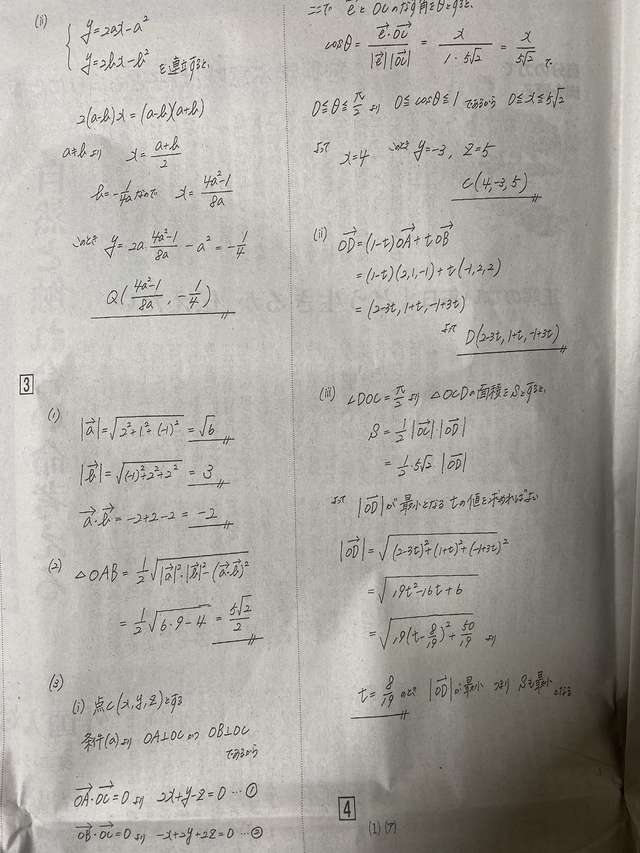 (ii)
{ y=2ax-a²
y=2bx-b² を連立すると、
2(a-b)x=(a-b)(a+b)
a≠bより x=\frac{a+b}{2}
b=-\frac{1}{4a}なので x=\frac{4a²-1}{8a}
このとき y=2a·\frac{4a²-1}{8a}-a²=-\frac{1}{4}
Q(\frac{4a²-1}{8a}, -\frac{1}{4})
3
(1)
|\vec{a}|=\sqrt{2²+1²+(-1)²}=\sqrt{6}
|\vec{b}|=\sqrt{(-1)²+2²+2²}=3
\vec{a}·\vec{b}=-2+2-2=-2
(2) △OAB=\frac{1}{2}\sqrt{|\vec{a}|²·|\vec{b}|²-(\vec{a}·\vec{b})²}
=\frac{1}{2}\sqrt{6·9-4}=\frac{5\sqrt{2}}{2}
(3)
(i) 点C(x,y,z)とする
条件(a)より OA⊥OC かつ OB⊥OC
であるから
\vec{OA}·\vec{OC}=0より 2x+y-z=0 …①
\vec{OB}·\vec{OC}=0より -x+2y+2z=0 …②
ここで \vec{e}と\vec{OC}のなす角をθとすると、
cosθ=\frac{\vec{e}·\vec{OC}}{|\vec{e}||\vec{OC}|}=\frac{x}{1·5\sqrt{2}}=\frac{x}{5\sqrt{2}} で
0≦θ≦\frac{π}{2}より 0≦cosθ≦1であるから 0≦x≦5\sqrt{2}
よって x=4 このとき y=-3, z=5
C(4,-3,5)
(ii) \vec{OD}=(1-t)\vec{OA}+t\vec{OB}
=(1-t)(2,1,-1)+t(-1,2,2)
=(2-3t,1+t,-1+3t)
よって D(2-3t,1+t,-1+3t)
(iii) ∠DOC=\frac{π}{2}より △OCDの面積をSとすると、
S=\frac{1}{2}|\vec{OC}|·|\vec{OD}|
=\frac{1}{2}·5\sqrt{2}·|\vec{OD}|
よって |\vec{OD}|が最小となるtの値を求めればよい
|\vec{OD}|=\sqrt{(2-3t)²+(1+t)²+(-1+3t)²}
=\sqrt{19t²-16t+6}
=\sqrt{19(t-\frac{8}{19})²+\frac{50}{19}} より
t=\frac{8}{19}のとき |\vec{OD}|が最小 つまり Sも最小
となる
4
(1)(ア)